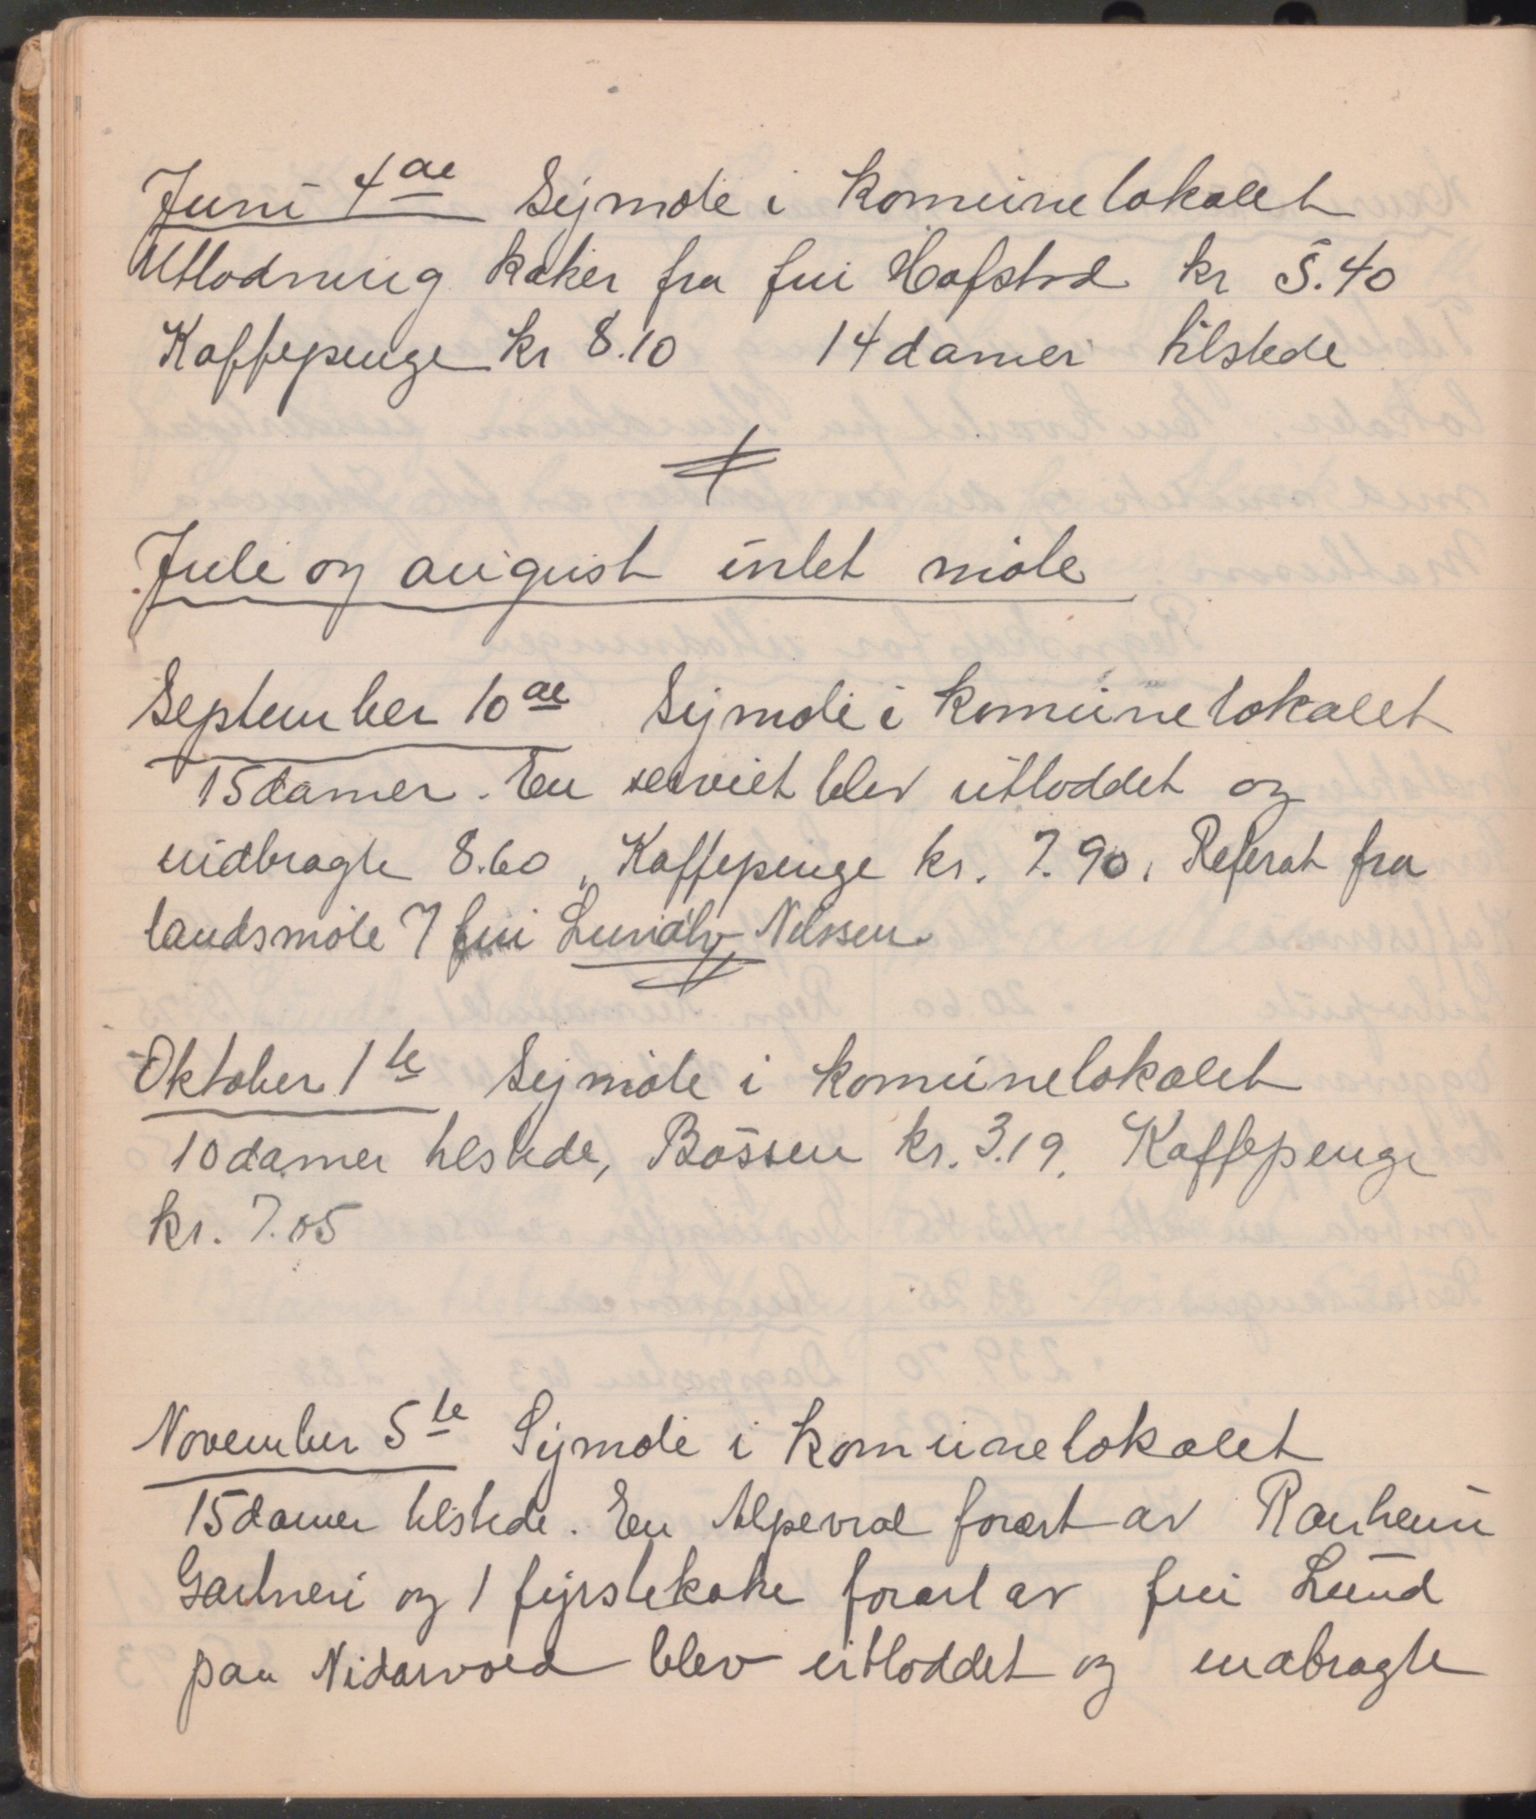 Juni 4de Symøte i komunelokalet
Utlodning kaker fra fru Hofstad kr 5.40
Kaffepenge kr 8.10 14 damer tilstede
Juli og august intet møte
September 10de Symøte i komunelokalet
15 damer. En serviet blev utloddet og
indbragte 8.60, Kaffepenge kr. 7.90. Referat fra
landsmøte 7 fru Nilssen.
Oktober 1te Symøte i komunelokalet
10 damer tilstede, Bøssen kr. 3.19. Kaffepenge
kr. 7.05
November 5te Symøte i komunelokalet
15 damer tilstede. En Alpeviol forært av Ranheim
Gartneri og 1 fyrstekake forært av fru Lund
paa Nidarvold blev utloddet og indbragte